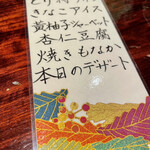 きなこアイス
黄柚子シャーベット
杏仁豆腐
焼きもなか
本日のデザート